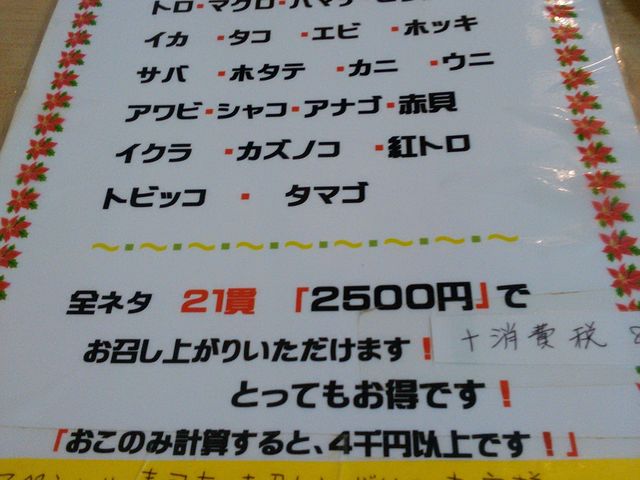 トロ・マグロ・ハマチ
イカ ・タコ ・エビ ・ホッキ
サバ ・ホタテ ・カニ ・ウニ
アワビ・シャコ・アナゴ・赤貝
イクラ ・カズノコ ・紅トロ
トビッコ ・ タマゴ
～・～・～・～・～・～・～・～・～
全ネタ 21貫 「2500円」で
お召し上がりいただけます！ ＋消費税
とってもお得です！
「おこのみ計算すると、4千円以上です！」